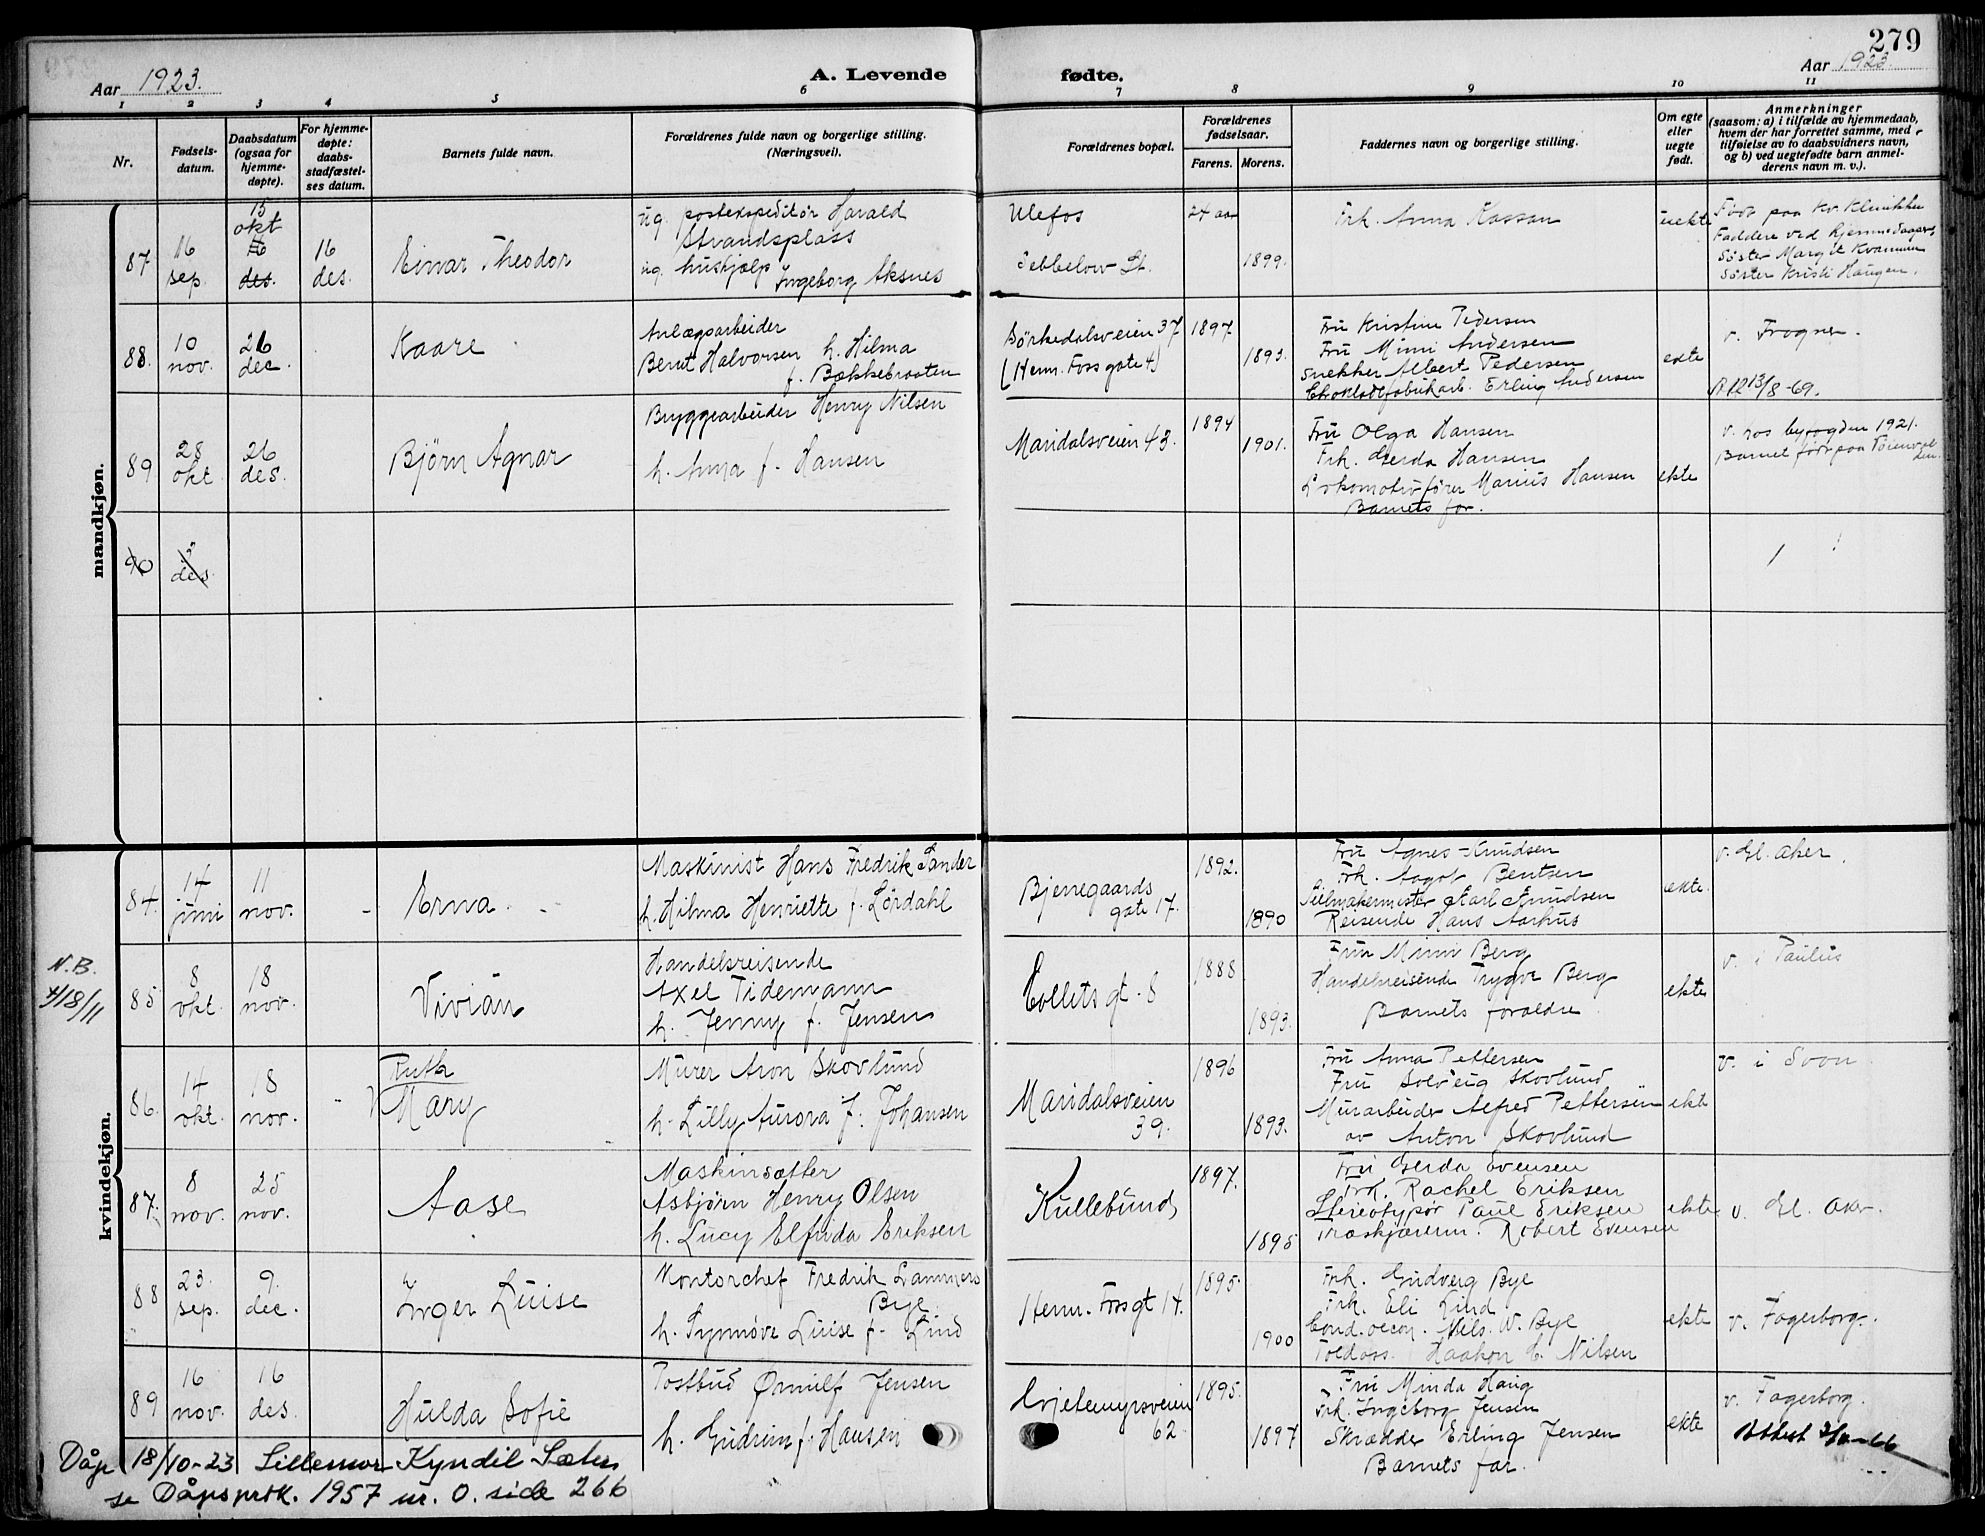 279
Aar 1923.
A. Levende fødte.
Aar 1923.
1 2 3 4 5 6 7 8 9 10 11
Nr.
Fødsels-
datum.
Daabsdatum
(ogsaa for
hjemme-
døpte).
For hjemme-
døpte:
daabs-
stadfæstel-
ses datum.
Barnets fulde navn.
Forældrenes fulde navn og borgerlige stilling.
(Næringsvei).
Forældrenes bopæl.
Forældrenes
fødselsaar.
Farens. Morens.
Faddernes navn og borgerlige stilling.
Om egte
eller
uegte
født.
Anmerkninger
(saasom: a) i tilfælde av hjemmedaab,
hvem der har forrettet samme, med
tilføielse av to daabsvidners navn,
og b) ved uegtefødte barn anmel-
derens navn m. v.).
mandkjøn.
87
16
sep.
15
okt
16
des.
16
des.
Einar Theodor
ug. postekspeditør Harald
Strandsplass
ug. hushjælp Ingeborg Aksnes
Ulefos
24 aar
1899.
Frk. Anna
uekte
Født paa Kv. Klinikken
Faddere ved hjemmedaapen
Søster Margit Kvammen
Søster Kristi Haugen.
88.
10
nov.
26
dec.
Kaare
Anlægsarbeider
Bernt Halvorsen h. Hilma
f. Bækkebraaten
Sørkedalsveien 37
(Herm. Fossgate 4)
1897
1893.
Fru Kristine Pedersen
Fru Mimi Andersen
Snekker Albert Pedersen
Chokoladefabrikarb. Erling Andersen
ekte
v. Frogner.
13/8-69.
89
28
okt.
26
des.
Bjørn Agnar
Bryggearbeider Henry Nilsen
h. Anna f. Hansen
Maridalsveien 43.
1894
1901.
Fru Olga Hansen
Frk. Gerda Hansen
Lokomotivfører Marius Hansen
Barnets far.
ekte
v. hos byfogden 1921.
Barnet født paa
90
des
kvindekjøn.
84.
14
juni
11
nov.
Erna
Maskinist Hans Fredrik Sander
h. Hilma Henriette f. Lørdahl
Bjerregaards
gate 17.
1892.
1890
Fru Agnes Knudsen
Frk. Aagot Bentsen
Seilmakermester Karl Knudsen
Reisende Hans Aarhus
ekte.
v. Gl. Aker.
N.B.
18/11
85
8
okt.
18
nov.
Vivian
Handelsreisende
Axel Tidemann
h. Jenny f. Jensen
Collets gt. 8
1888
1893.
Fru Mimi Berg
Handelsreisende Trygve Berg
Barnets foraldre
ekte
v. i Paulus
86.
14
okt.
18
nov.
Ruth
Mary
Murer Aron Skovlund
h. Lilly Aurora f. Johansen
Maridalsveien
39.
1896
1893.
Fru Anna Pettersen
Fru Solveig Skovlund
Murarbeider Alfred Pettersen
av Anton Skovlund
ekte
v. i Svon
87.
8
nov.
25
nov.
Aase
Maskinsætter
Asbjørn Henry Olsen
h. Lucy Elfrida Eriksen
Kullebund
1897.
1895
Fru Gerda Evensen
Frk. Rachel Eriksen
Stereotypør Paul Eriksen
Træskjærerm. Robert Evensen
ekte
v. Gl. Aker.
88
23.
sep.
9.
dec.
Inger Luise
Kontorchef Fredrik Lammers
Bye
h. Synnøve Luise f. Lind
Herm. Fossgt 14.
1895.
1900
Frk. Gudveig Bye
Frk. Eli Lind
Cand. oecon. Nils W. Bye
Toldass. Haakon C. Nilsen
ekte
v. Fagerborg.
89
16
nov.
16
des.
Hulda Sofie
Postbud Ørnulf Jensen
h. Gudrun f. Hansen
Geitemyrsveien
62.
1895.
1897
Fru Minda Haug
Frk. Ingeborg Jensen
Skrædder Erling Jensen
Barnets far.
ekte
v. Fagerborg.
Attest
Dåp 18/10-23 Lillemor Kyndil Sæter
se Dåpsprot. 1957 nr. 0. side 266